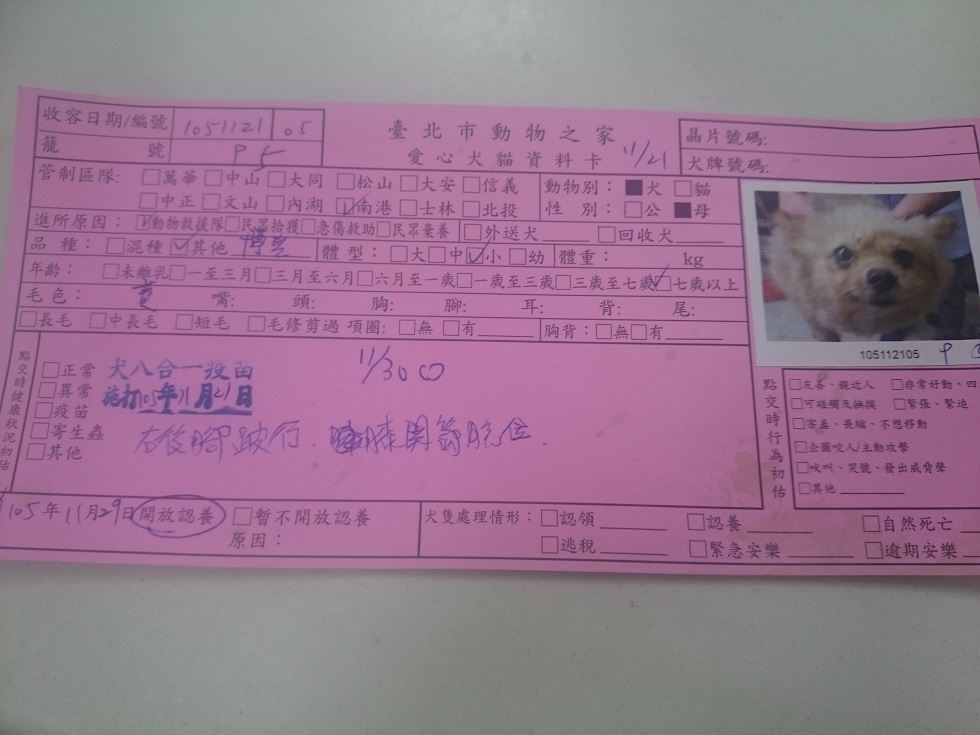 收容日期/編號 1051121 05
臺北市動物之家
籠 號 P5
愛心犬貓資料卡 11/21
晶片號碼:
犬牌號碼:
管制區隊: □萬華□中山□大同 □松山□大安□信義
□中正□文山□內湖☑南港□士林□北投
動物別：■犬 □貓
性 別：□公 ■母
進所原因：☑動物救援隊□民眾拾獲□急傷救助□民眾棄養 □外送犬 □回收犬
品 種：□混種☑其他 博美 體 型：□大□中☑小□幼 體重： kg
年齡：□未離乳□一至三月□三月至六月□六月至一歲□一歲至三歲□三歲至七歲☑七歲以上
毛色：黃 嘴: 頭: 胸: 腳: 耳: 背: 尾:
□長毛 □中長毛 □短毛 □毛修剪過 項圈：□無 □有 胸背：□無□有
105112105 P
點交時健康狀況初估
□正常
□異常
□疫苗
□寄生蟲
□其他
犬八合一疫苗
施打105年11月21日
11/30
右後腳跛行、膝關節脫位.
點交時行為初估
□友善、親近人 □非常好動、四
□可碰觸及撫摸 □緊張、緊迫
□害羞、畏縮、不想移動
□企圖咬人/主動攻擊
□吠叫、哭號、發出威脅聲
□其他
105年11月29日開放認養 □暫不開放認養
原因：
犬隻處理情形：□認領 □認養 □自然死亡
□逃脫 □緊急安樂 □逾期安樂